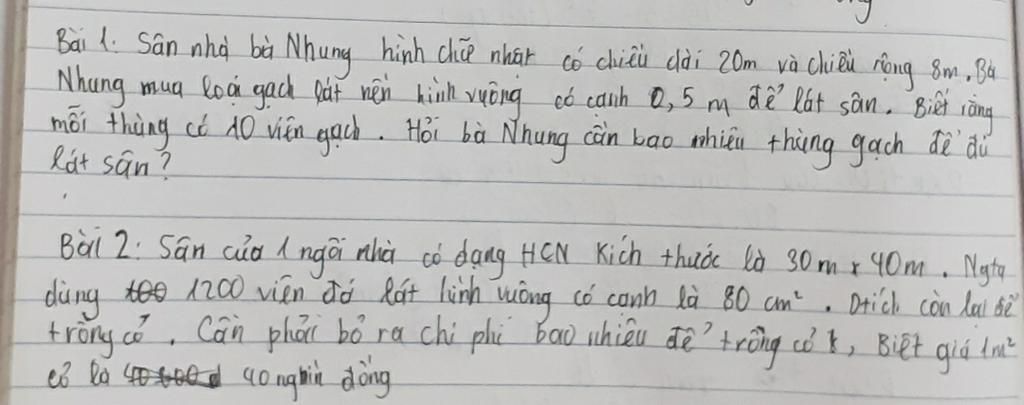 Bài 1. Sân nhà bà Nhung hình chữ nhật có chiều dài 20m và chiều rộng 8m. Bà
Nhung mua loại gạch lát nền hình vuông có cạnh 0,5 m để lát sân. Biết rằng
mỗi thùng có 10 viên gạch. Hỏi bà Nhung cần bao nhiêu thùng gạch để đủ
lát sân?
Bài 2: Sân của 1 ngôi nhà có dạng HCN kích thước là 30m x 40m. Ngta
dùng 1200 viên đá lát hình vuông có cạnh là 80 cm². Dtích còn lại để
trồng cỏ. Cần phải bỏ ra chi phí bao nhiêu để trồng cỏ, Biết giá 1m²
cỏ là 40 nghìn đồng